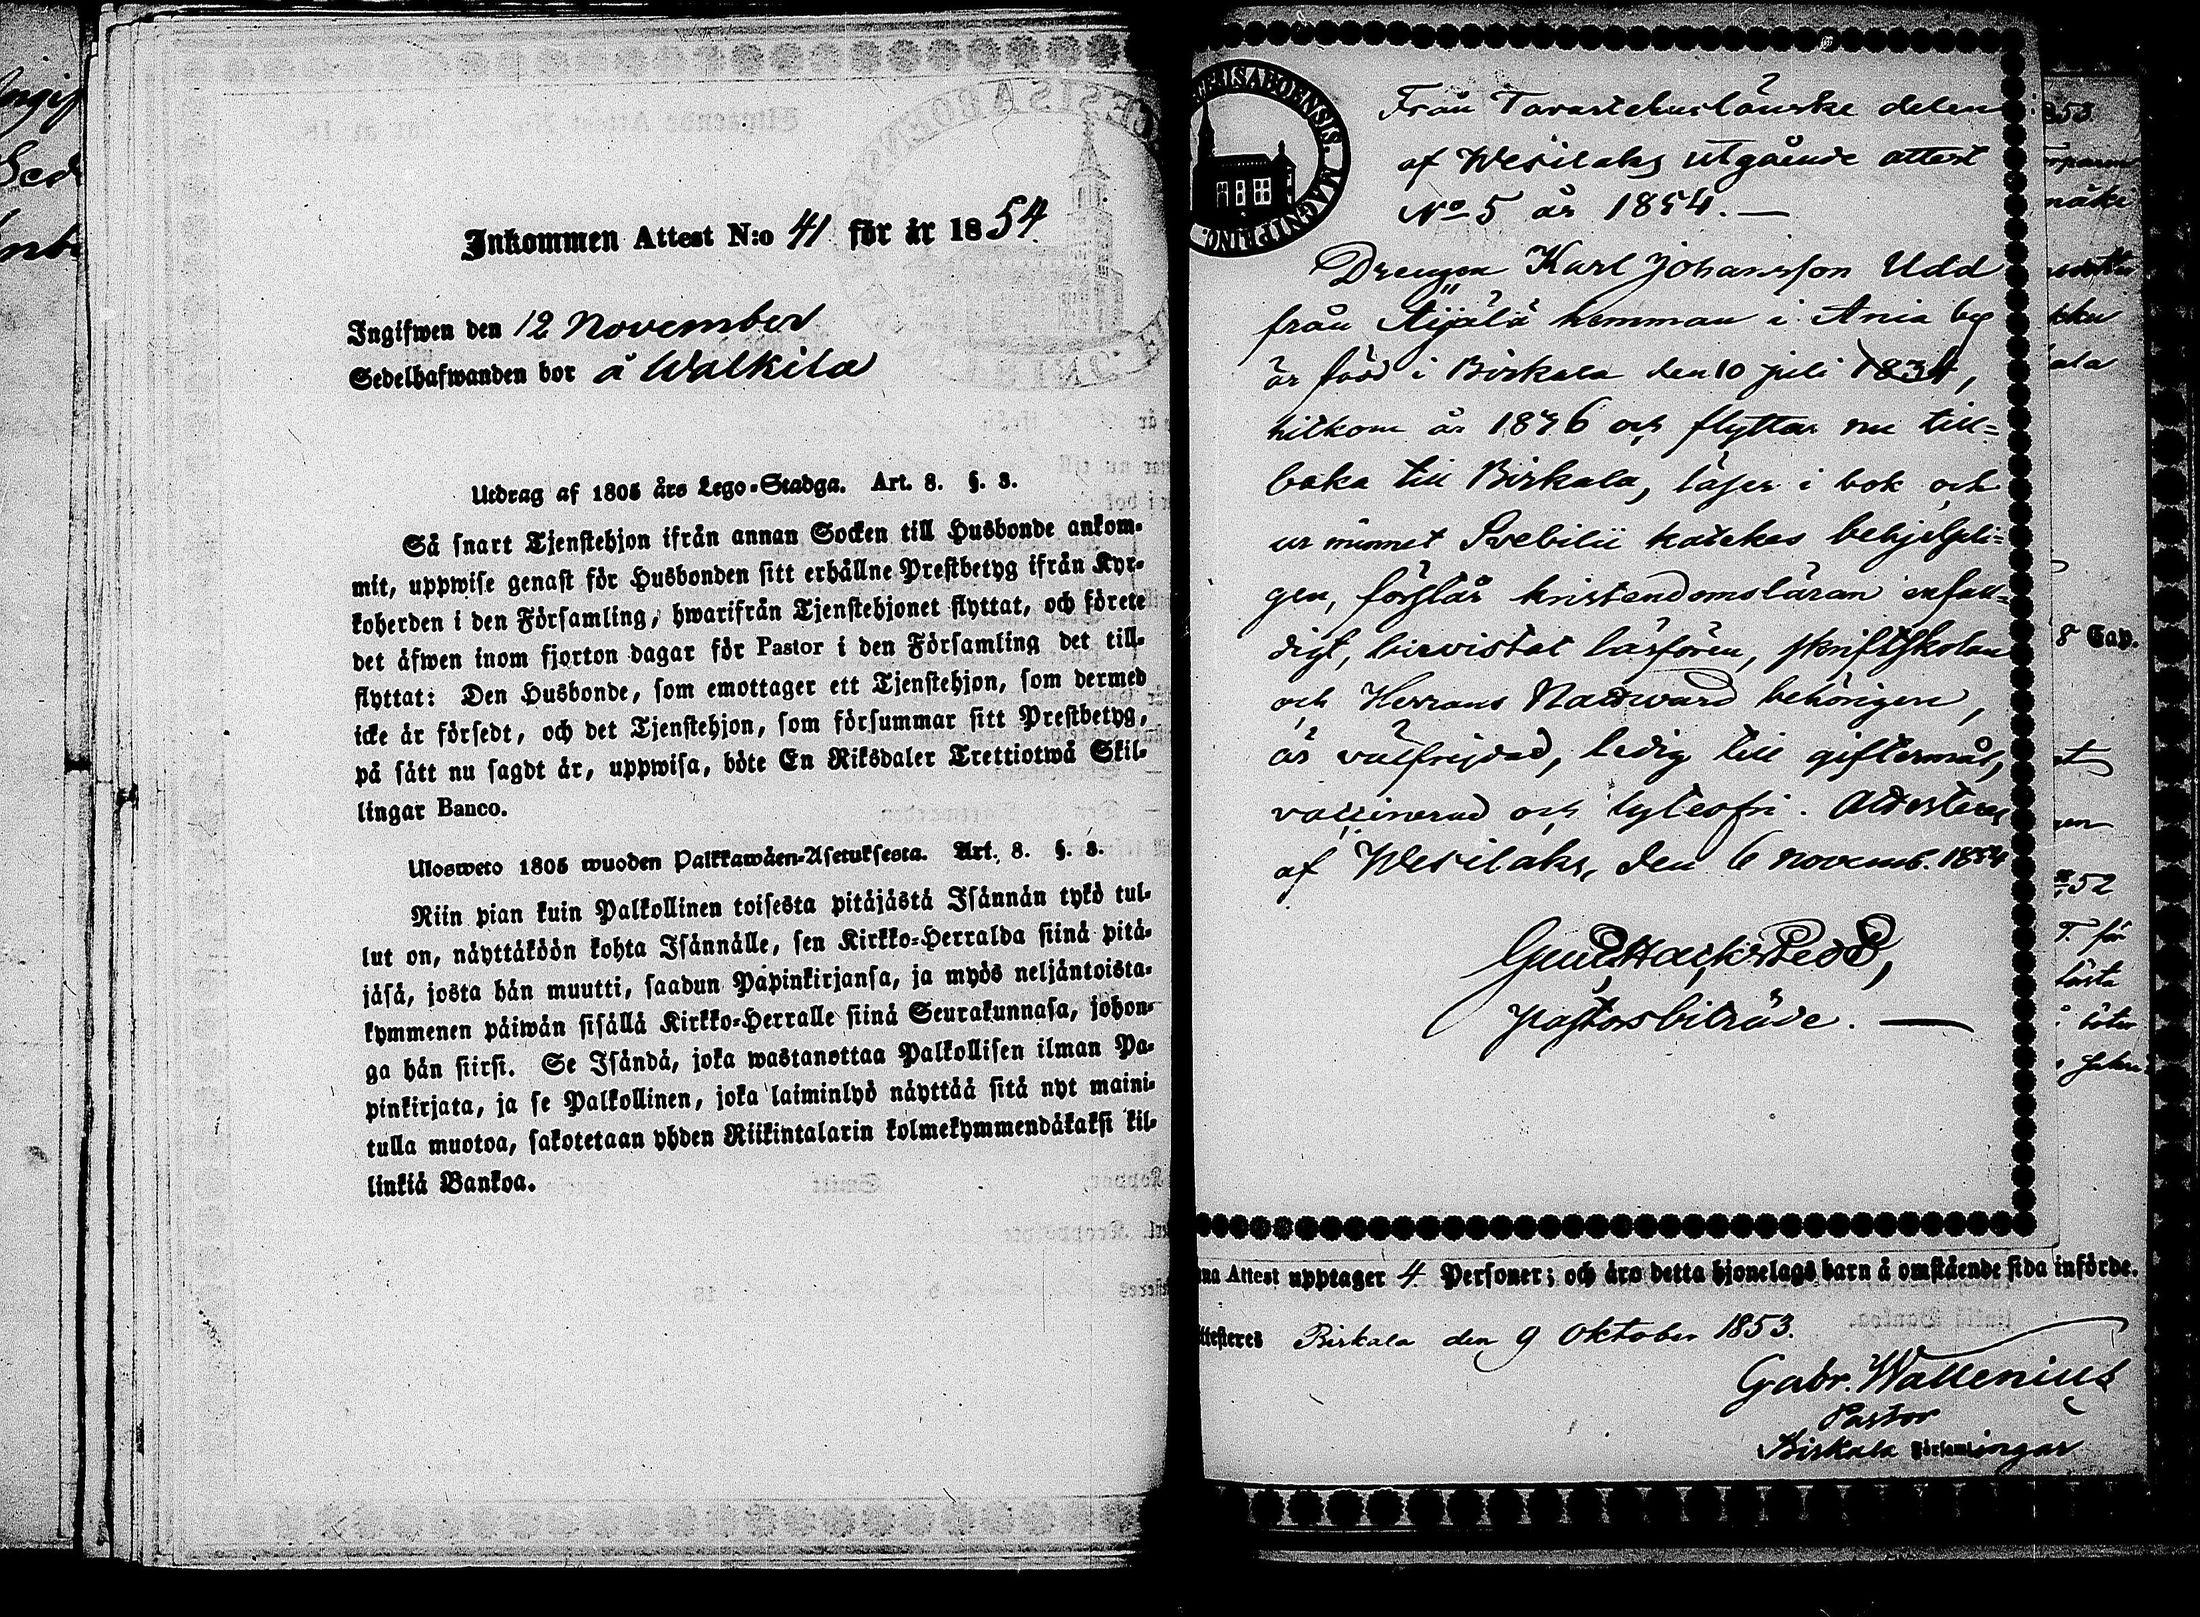 Inkommen Attest N:o 41 för år 1854.
Ingifwen den 12 November
Sedelhafwanden bor å Walkila
Utdrag af 1805 års Lego-Stadga. Art. 8. §. 3.
Så snart Tjenstehjon ifrån annan Socken till Husbonde ankom-
mit, uppwise genast för Husbonden sitt erhållne Prestbetyg ifrån Kyr-
koherden i den Församling, hwarifrån Tjenstehjonet flyttat, och förete
det äfwen inom fjorton dagar för Pastor i den Församling det till-
flyttat: Den Husbonde, som emottager ett Tjenstehjon, som dermed
icke är försedt, och det Tjenstehjon, som försummar sitt Prestbetyg,
på sätt nu sagdt är, uppwisa, böte En Riksdaler Trettiotwå Skil-
lingar Banco.
Ulosweto 1805 wuoden Palkkawäen-Asetuksesta. Art. 8. §. 3.
Niin pian kuin Palkollinen toisesta pitäjästä Isännän tykö tul-
lut on, näyttäköön kohta Isännälle, sen Kirkko-Herralda siinä pitä-
jäsä, josta hän muutti, saadun Papinkirjansa, ja myös neljäntoista-
kymmenen päiwän sisällä Kirkko-Herralle siinä Seurakunnasa, johon-
ga hän siirsi. Se Isändä, joka wastanottaa Palkollisen ilman Pa-
pinkirjata, ja se Palkollinen, joka laiminlyö näyttää sitä nyt maini-
tulla muotoa, sakotetaan yhden Riikintalarin kolmekymmendäkaksi kil-
linkiä Bankoa.
Från Tavastehuslänske delen
af Wesilaks utgående attest
No 5 år 1854. —
Drengen Karl Johansson Udd
från Äijälä hemman i Ania by
är född i Birkala den 10 juli 1834,
hitkom år 1846 och flyttar nu till=
baka till Birkala, läser i bok och
ur minnet Svebilii katekes behjelpli=
gen, förstår kristendomsläran enfal=
digt, bivistat läsförh, skriftskolan
och Herrans Nattvard behörigen,
är välfrejdad, ledig till giftermål,
vaccinerad och lyteofri. Attesteras
af Wesilaks, den 6 novemb. 1854
pastorsbiträde. —
na Attest upptager 4 Personer; och äro detta hjonelags barn å omstående sida införde.
ttesteres Birkala den 9 Oktober 1853.
Gabr. Wallenius
Pastor
Birkala Församlingar